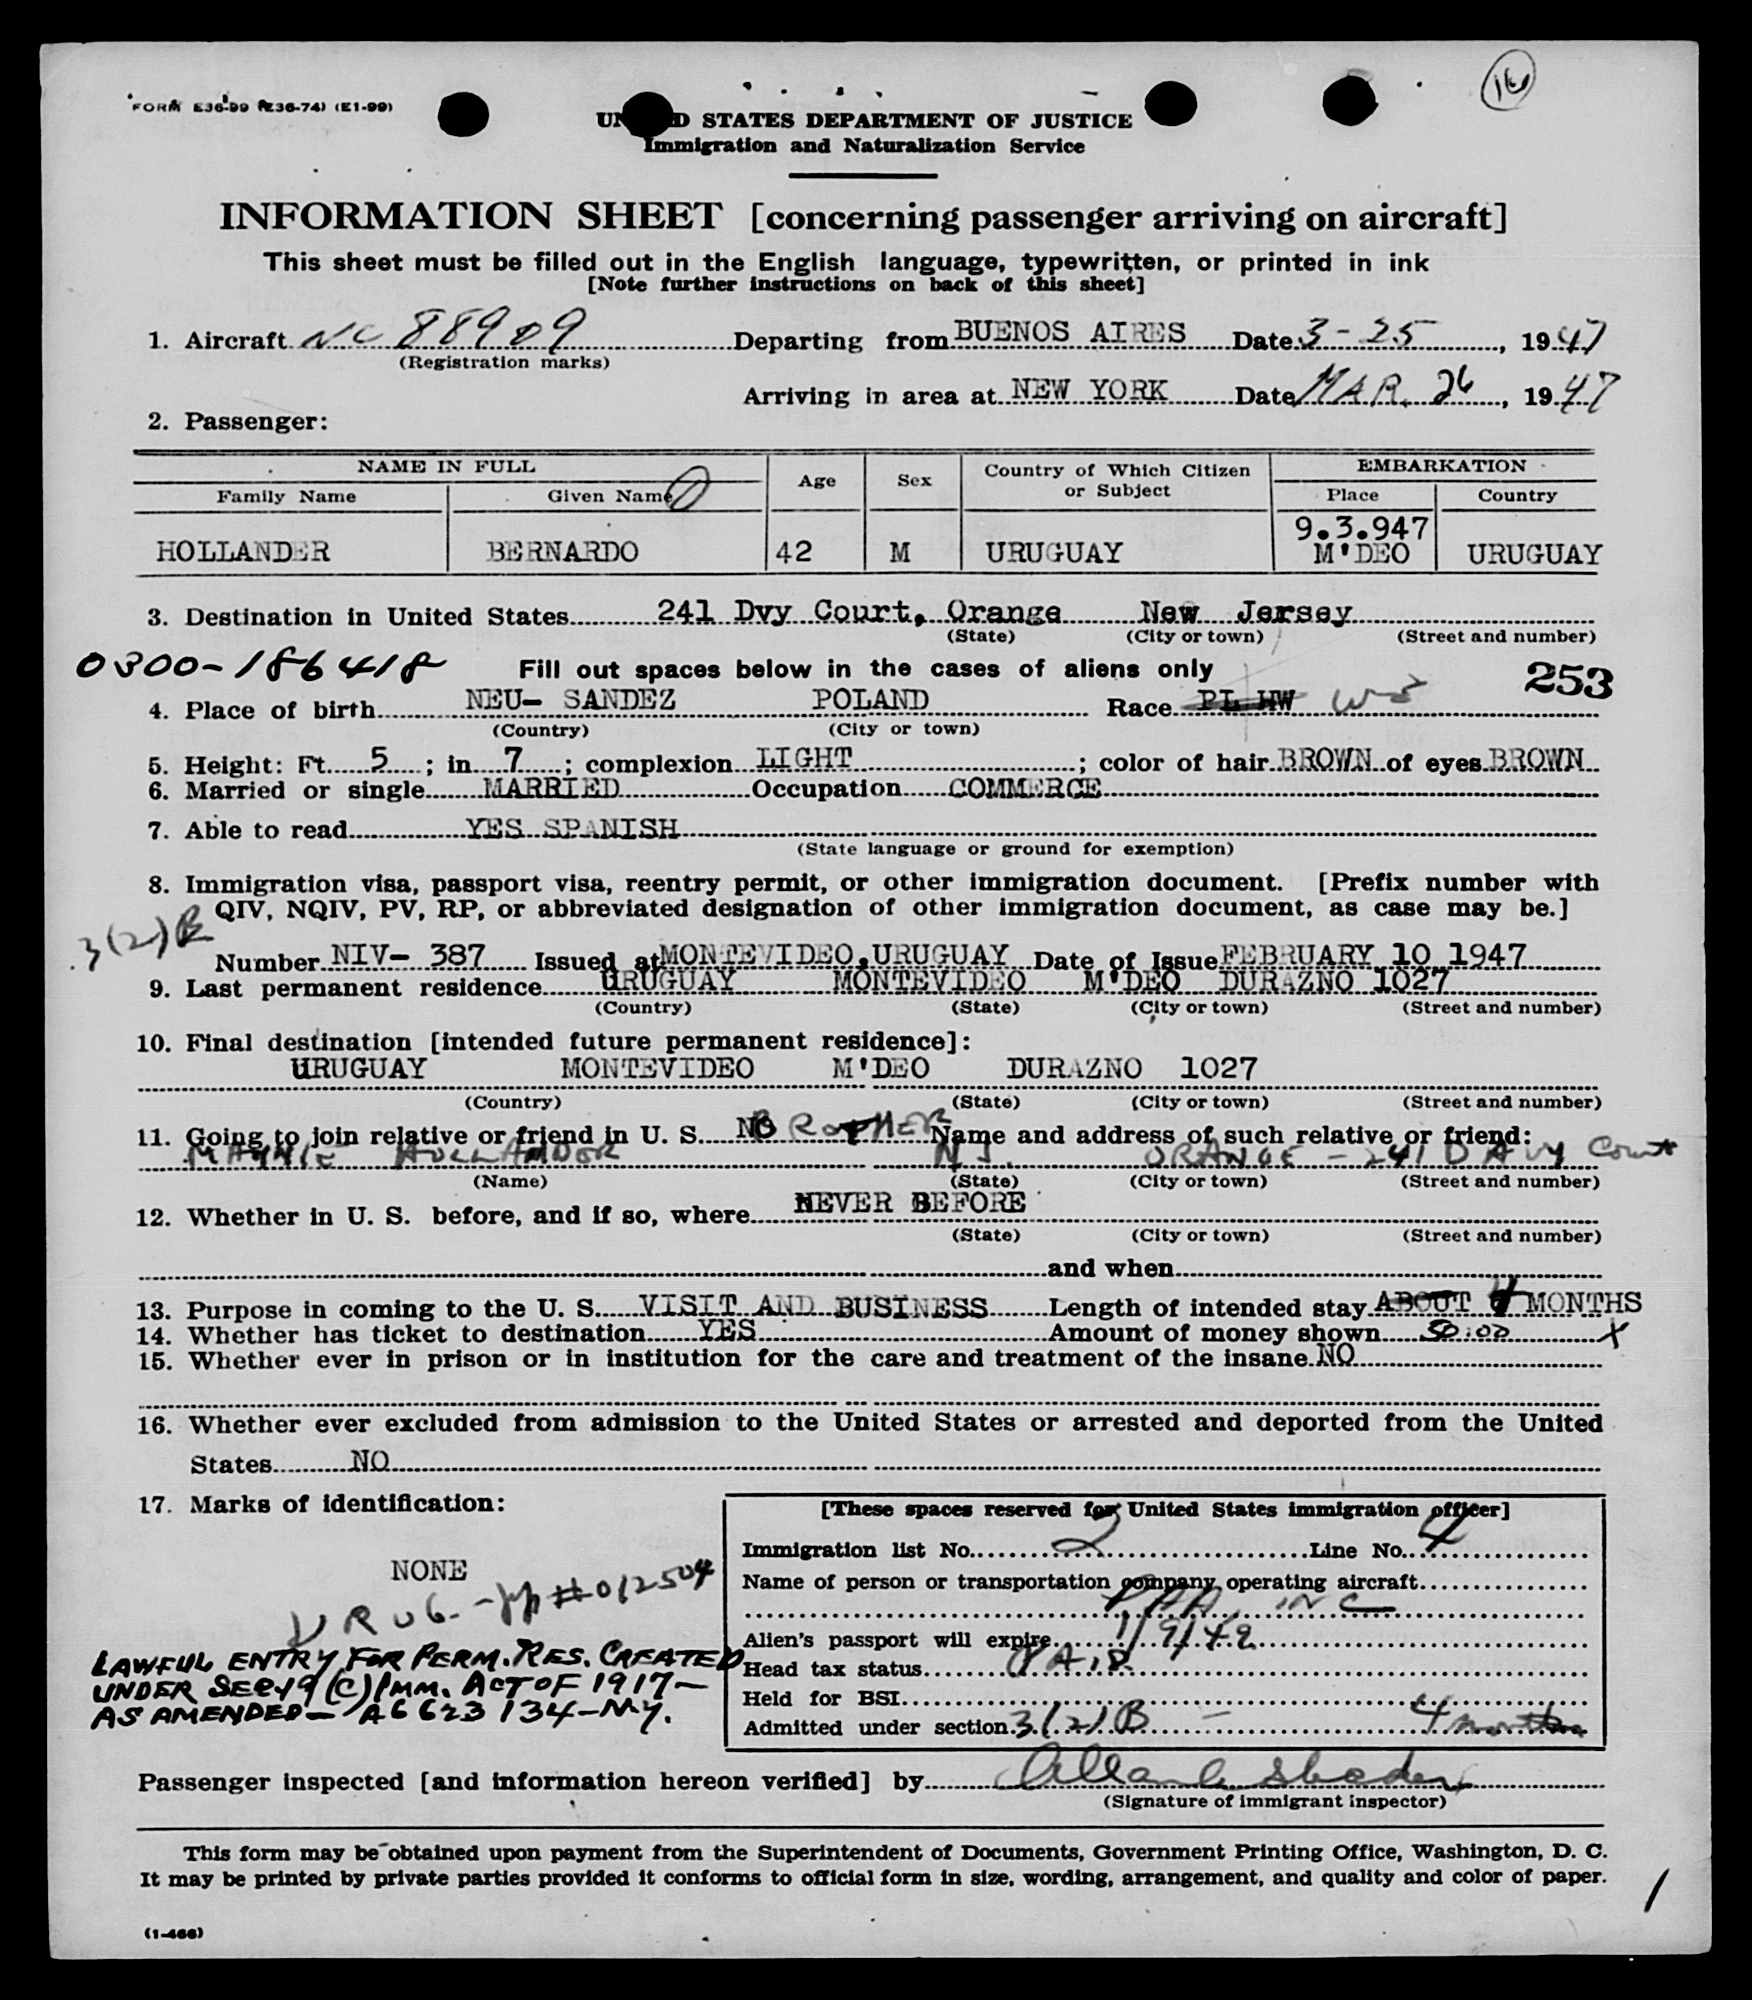 FORM E36-99 (E36-74) (E1-99)
16
UNITED STATES DEPARTMENT OF JUSTICE
Immigration and Naturalization Service
INFORMATION SHEET [concerning passenger arriving on aircraft]
This sheet must be filled out in the English language, typewritten, or printed in ink
[Note further instructions on back of this sheet]
1. Aircraft NC 88909 Departing from BUENOS AIRES Date 3-25, 1947
(Registration marks)
Arriving in area at NEW YORK Date MAR. 26, 1947
2. Passenger:
NAME IN FULL Age Sex Country of Which Citizen or Subject EMBARKATION
Family Name Given Name Place Country
9.3.947
HOLLANDER BERNARDO 42 M URUGUAY M'DEO URUGUAY
3. Destination in United States 241 Dvy Court, Orange New Jersey
(State) (City or town) (Street and number)
0300-186418 Fill out spaces below in the cases of aliens only 253
4. Place of birth NEU- SANDEZ POLAND Race
(Country) (City or town)
5. Height: Ft. 5; in. 7; complexion LIGHT; color of hair BROWN of eyes BROWN
6. Married or single MARRIED Occupation COMMERCE
7. Able to read YES SPANISH
(State language or ground for exemption)
8. Immigration visa, passport visa, reentry permit, or other immigration document. [Prefix number with
QIV, NQIV, PV, RP, or abbreviated designation of other immigration document, as case may be.]
3(2)B
Number NIV- 387 Issued at MONTEVIDEO,URUGUAY Date of Issue FEBRUARY 10 1947
9. Last permanent residence URUGUAY MONTEVIDEO M'DEO DURAZNO 1027
(Country) (State) (City or town) (Street and number)
10. Final destination [intended future permanent residence]:
URUGUAY MONTEVIDEO M'DEO DURAZNO 1027
(Country) (State) (City or town) (Street and number)
11. Going to join relative or friend in U. S. NO BROTHER Name and address of such relative or friend:
MANNIE HOLLANDER N.J. ORANGE - 241 DAVY Court
(Name) (State) (City or town) (Street and number)
12. Whether in U. S. before, and if so, where NEVER BEFORE
(State) (City or town) (Street and number)
and when
13. Purpose in coming to the U. S. VISIT AND BUSINESS Length of intended stay ABOUT 4 MONTHS
14. Whether has ticket to destination YES Amount of money shown 50.00 X
15. Whether ever in prison or in institution for the care and treatment of the insane. NO
16. Whether ever excluded from admission to the United States or arrested and deported from the United
States NO
17. Marks of identification:
NONE
URUG. -pp #012504
LAWFUL ENTRY FOR PERM. RES. CREATED
UNDER SEC 19 (C) IMM. ACT OF 1917-
AS AMENDED- A6 623 134-N.Y.
[These spaces reserved for United States immigration officer]
Immigration list No. 2 Line No. 4
Name of person or transportation company operating aircraft
PAA INC
Alien's passport will expire 1/9/49
Head tax status PAID
Held for BSI
Admitted under section 3(2)B - 4 months
Passenger inspected [and information hereon verified] by
(Signature of immigrant inspector)
This form may be obtained upon payment from the Superintendent of Documents, Government Printing Office, Washington, D. C.
It may be printed by private parties provided it conforms to official form in size, wording, arrangement, and quality and color of paper.
1
(1-466)